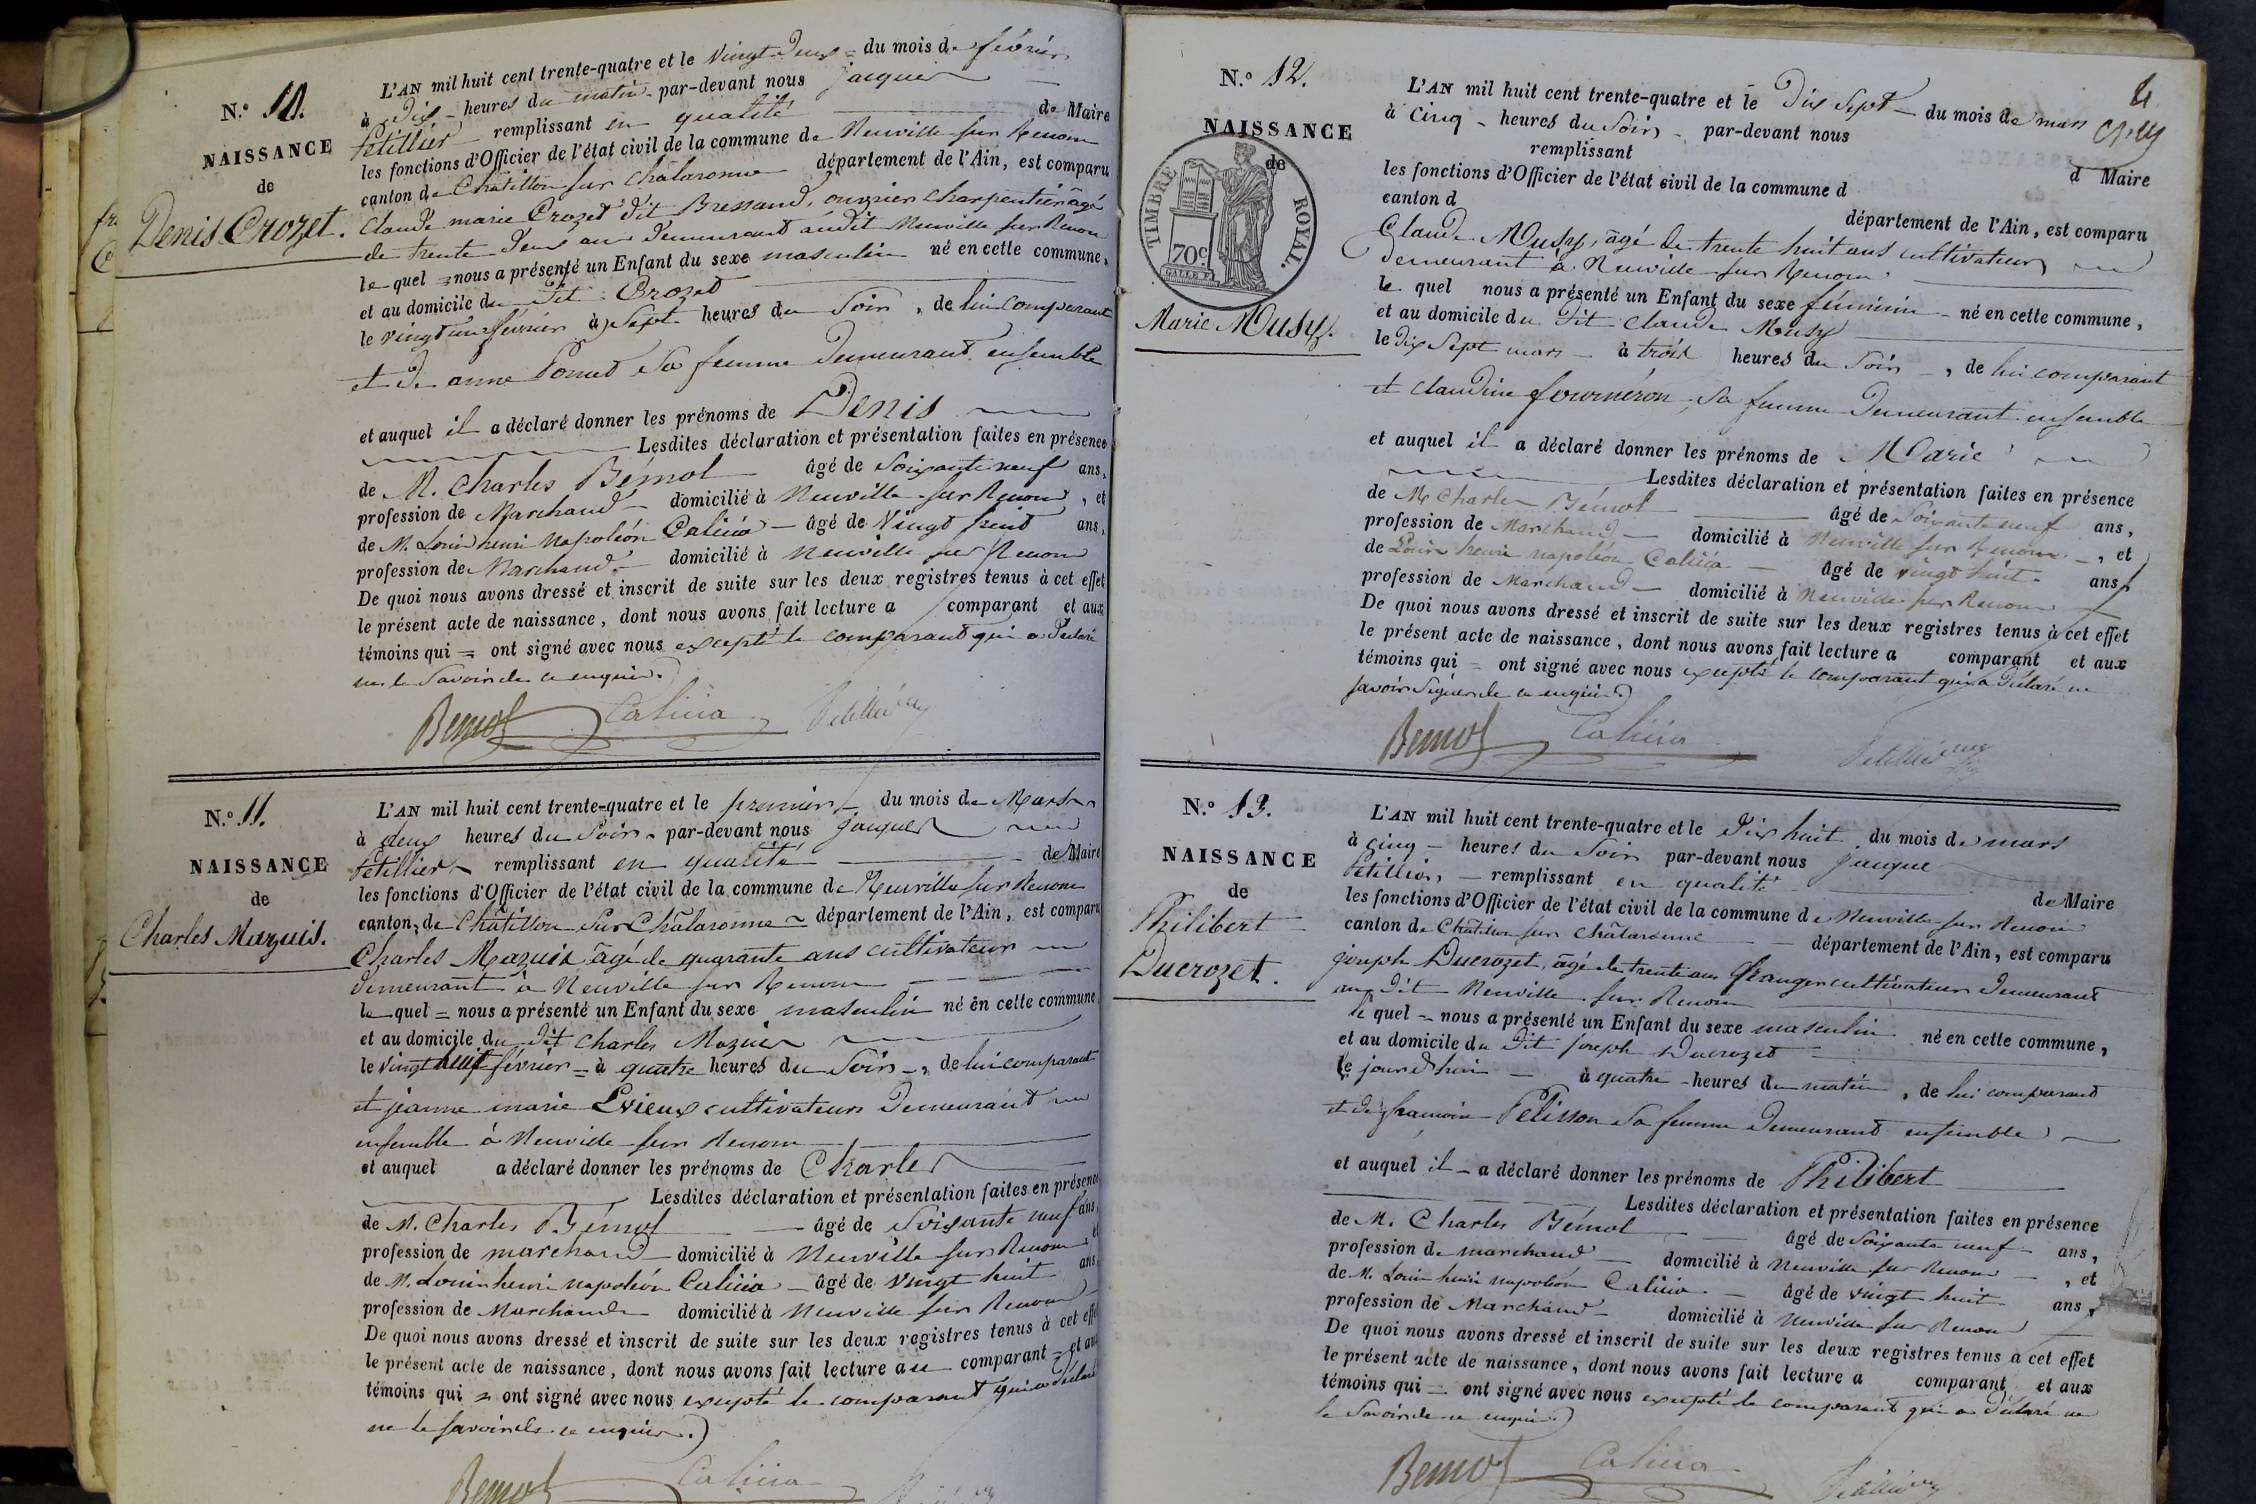 N.o 10.
NAISSANCE
de
Denis Crozet.
L'AN mil huit cent trente-quatre et le vingt deux = du mois de février
à dix - heures du matin - par-devant nous jacques
Petillier remplissant en qualité de Maire
les fonctions d'Officier de l'état civil de la commune de Neuville sur Renom
canton de Châtillon sur Chalaronne département de l'Ain, est comparu
Claude marie Crozet dit Bressand, ouvrier charpentier âgé
de trente deux ans demeurant audit Neuville sur Renom
le quel = nous a présenté un Enfant du sexe masculin né en cette commune,
et au domicile du dit Crozet
le vingt un février à sept heures du soir, de lui comparant
et de anne Ponud sa femme demeurant ensemble
et auquel il a déclaré donner les prénoms de Denis
Lesdites déclaration et présentation faites en présence
de M. Charles Bémol âgé de soixante neuf ans,
profession de Marchand - domicilié à Neuville sur Renom, et
de M. Louis henri Napoléon Calicia - âgé de Vingt huit ans,
profession de Marchand - domicilié à Neuville sur Renom
De quoi nous avons dressé et inscrit de suite sur les deux registres tenus à cet effet
le présent acte de naissance, dont nous avons fait lecture a comparant et aux
témoins qui = ont signé avec nous excepté le comparant qui a déclaré
ne le savoir de ce enquis.
Bemol Calicia Petillier
N.o 11.
NAISSANCE
de
Charles Mazuis.
L'AN mil huit cent trente-quatre et le premier - du mois de Mars
à deux heures du soir - par-devant nous jacques
Petillier remplissant en qualité de Maire
les fonctions d'Officier de l'état civil de la commune de Neuville sur Renom
canton de Châtillon sur Chalaronne - département de l'Ain, est comparu
Charles Mazuis âgé de quarante ans cultivateur
demeurant à Neuville sur Renom
le quel = nous a présenté un Enfant du sexe masculin né en cette commune
et au domicile du dit Charles Mazuis
le vingt huit février = à quatre heures du soir -, de lui comparant
et jeanne marie Evieux cultivateurs demeurant
ensemble à Neuville sur Renom
et auquel a déclaré donner les prénoms de Charles
Lesdites déclaration et présentation faites en présence
de M. Charles Bémol - âgé de soixante neuf ans,
profession de marchand - domicilié à Neuville sur Renom et
de M. Louis henri napoléon Calicia - âgé de vingt huit ans
profession de Marchand - domicilié à Neuville sur Renom
De quoi nous avons dressé et inscrit de suite sur les deux registres tenus à cet effet
le présent acte de naissance, dont nous avons fait lecture au comparant = et aux
témoins qui = ont signé avec nous excepté le comparant qui a déclaré
ne le savoir de ce enquis.
Bemol Calicia
N.o 12.
NAISSANCE
de
TIMBRE ROYAL.
70c
Marie Musy.
L'AN mil huit cent trente-quatre et le Dix Sept - du mois de mars
à Cinq - heures du Soir - par-devant nous
remplissant d Maire
les fonctions d'Officier de l'état civil de la commune d
canton d département de l'Ain, est comparu
Claude Musy, âgé de trente huit ans cultivateur
demeurant à Neuville sur Renom
le quel nous a présenté un Enfant du sexe féminin - né en cette commune,
et au domicile du dit Claude Musy
le dix Sept mars - à trois heures du Soir -, de lui comparant
et claudine fourneron, sa femme demeurant ensemble
et auquel il a déclaré donner les prénoms de Marie
Lesdites déclaration et présentation faites en présence
de M. Charles Bémol âgé de Soixante neuf ans,
profession de Marchand - domicilié à Neuville sur Renom -, et
de Louis henri napoléon Calicia - âgé de vingt huit - ans,
profession de Marchand - domicilié à Neuville sur Renom
De quoi nous avons dressé et inscrit de suite sur les deux registres tenus à cet effet
le présent acte de naissance, dont nous avons fait lecture a comparant et aux
témoins qui = ont signé avec nous excepté le comparant qui a déclaré ne
savoir signer de ce enquis
Bemol Calicia Petillier
N.o 13.
NAISSANCE
de
Philibert
Ducrozet.
L'AN mil huit cent trente-quatre et le Dix huit du mois de mars
à cinq - heures du Soir par-devant nous jacque
Petillier, - remplissant en qualité de Maire
les fonctions d'Officier de l'état civil de la commune de Neuville sur Renom
canton de Châtillon sur Chalaronne - département de l'Ain, est comparu
joseph Ducrozet, âgé de trente ans Granger cultivateur demeurant
au dit Neuville sur Renom
le quel = nous a présenté un Enfant du sexe masculin né en cette commune,
et au domicile du dit joseph Ducrozet
le jour d'hui - à quatre - heures du matin, de lui comparant
et de francoise Pelisson sa femme demeurant ensemble
et auquel il - a déclaré donner les prénoms de Philibert
Lesdites déclaration et présentation faites en présence
de M. Charles Bémol - âgé de Soixante neuf - ans,
profession de marchand - domicilié à Neuville sur Renom -, et
de M. Louis henri napoléon Calicia - âgé de vingt huit ans,
profession de Marchand - domicilié à Neuville sur Renom
De quoi nous avons dressé et inscrit de suite sur les deux registres tenus à cet effet
le présent acte de naissance, dont nous avons fait lecture a comparant et aux
témoins qui - ont signé avec nous excepté le comparant qui a déclaré ne
le Savoir de ce enquis.
Bemol Calicia Petillier